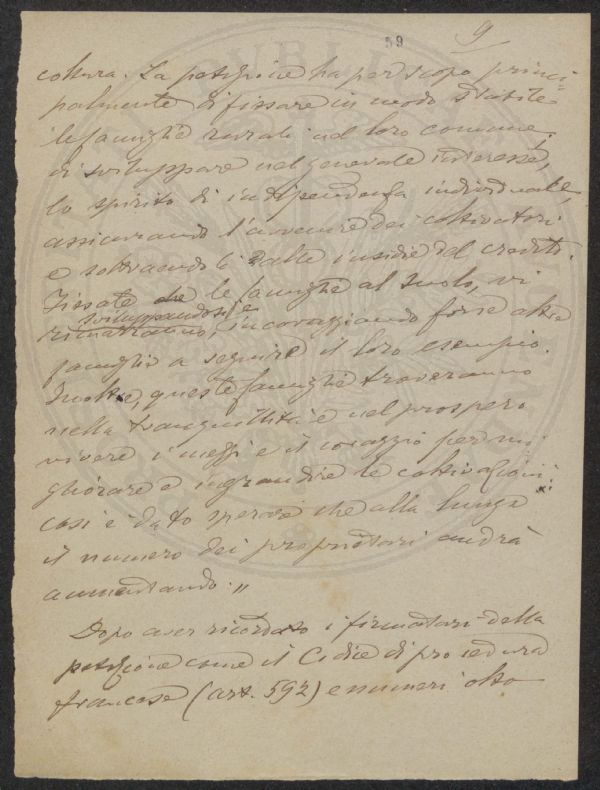 59
9
coltura. La petizione ha per scopo princi=
palmente di fissare in modo stabile
le famiglie rurali nel loro comune,
di sviluppare nel generale interesse,
lo spirito di indipendenza individuale,
assicurando l'avvenire dei coltivatori
e sottraendoli dalle insidie del credito.
Fissate le famiglie al suolo, vi
sviluppandosi e
rimarranno, incoraggiando forse altre
famiglie a seguire il loro esempio.
Inoltre, queste famiglie troveranno
nella tranquillità e nel prospero
vivere i mezzi e il coraggio per mi
gliorare e ingrandire le coltivazioni:
così è dato sperare che alla lunga
il numero dei proprietari andrà
aumentando.„
Dopo aver ricordato i firmatari della
petizione come il Codice di procedura
francese (art. 592) enumeri otto